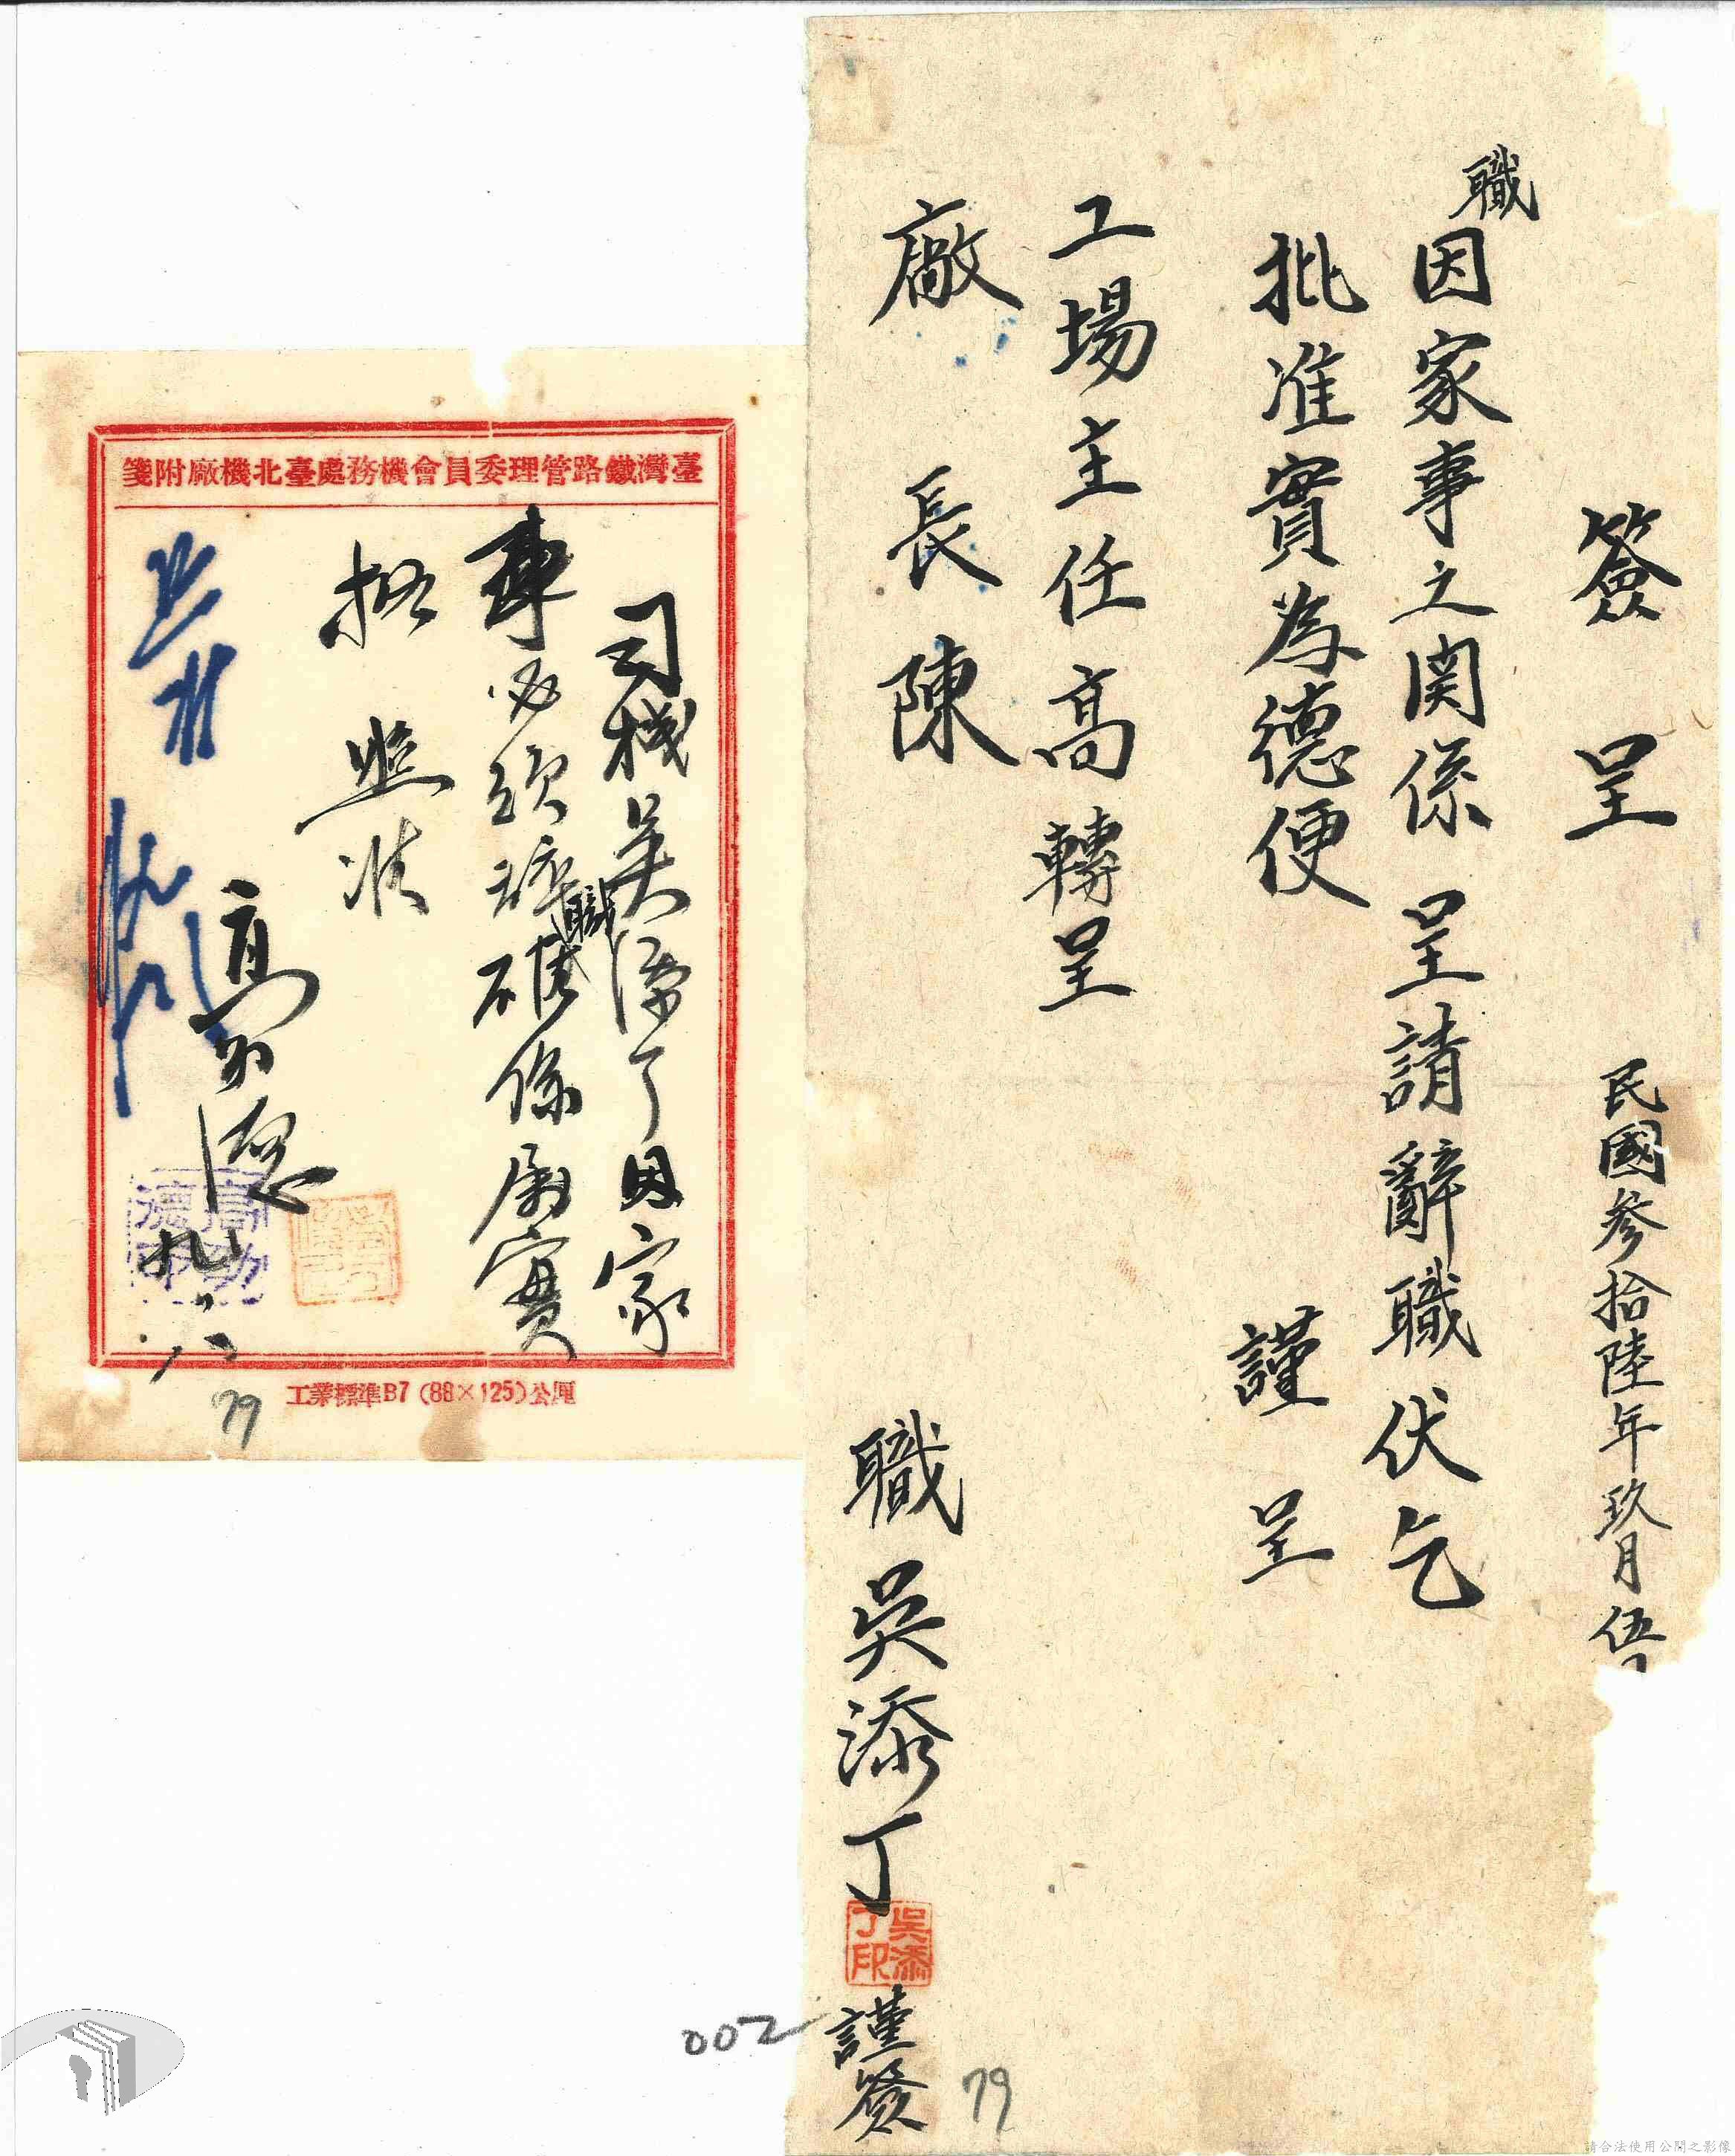 簽呈
民國參拾陸年玖月伍
職因家事之関係 呈請辭職伏乞
批准實為德便
謹呈
工場主任高轉呈
廠長陳
職吳添丁謹簽
吳添丁印
002
79
臺灣鐵路管理委員會機務處臺北機廠附箋
司機吳添丁因家
事必須辞職確係屬實
擬照准
九.八
79
工業標準B7(88×125)公厘
請合法使用公開之影像